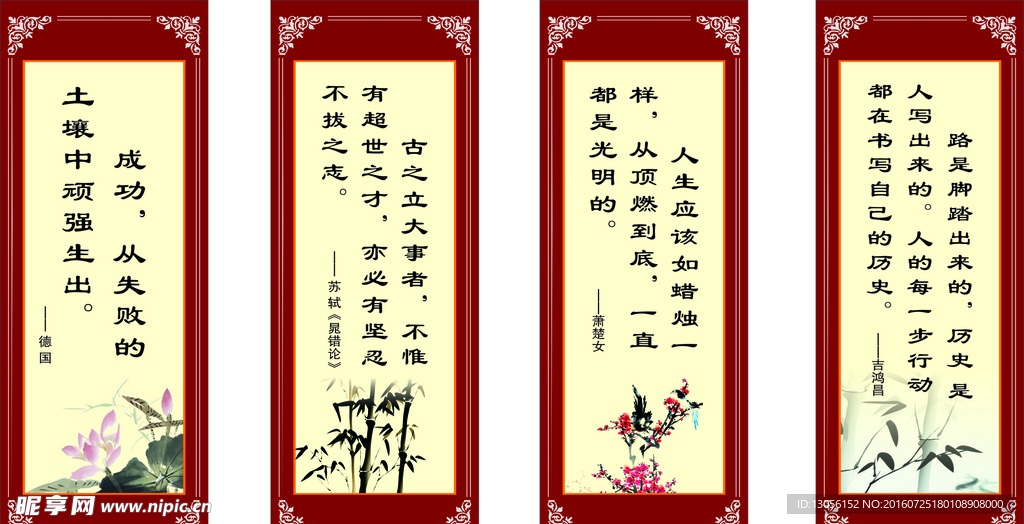 成功，从失败的
土壤中顽强生出。
——德国
古之立大事者，不惟
有超世之才，亦必有坚忍
不拔之志。
——苏轼《晁错论》
人生应该如蜡烛一
样，从顶燃到底，一直
都是光明的。
——萧楚女
路是脚踏出来的，历史是
人写出来的。人的每一步行动
都在书写自己的历史。
——吉鸿昌
昵享网 www.nipic.cn
ID:13056152 NO:20160725180108908000